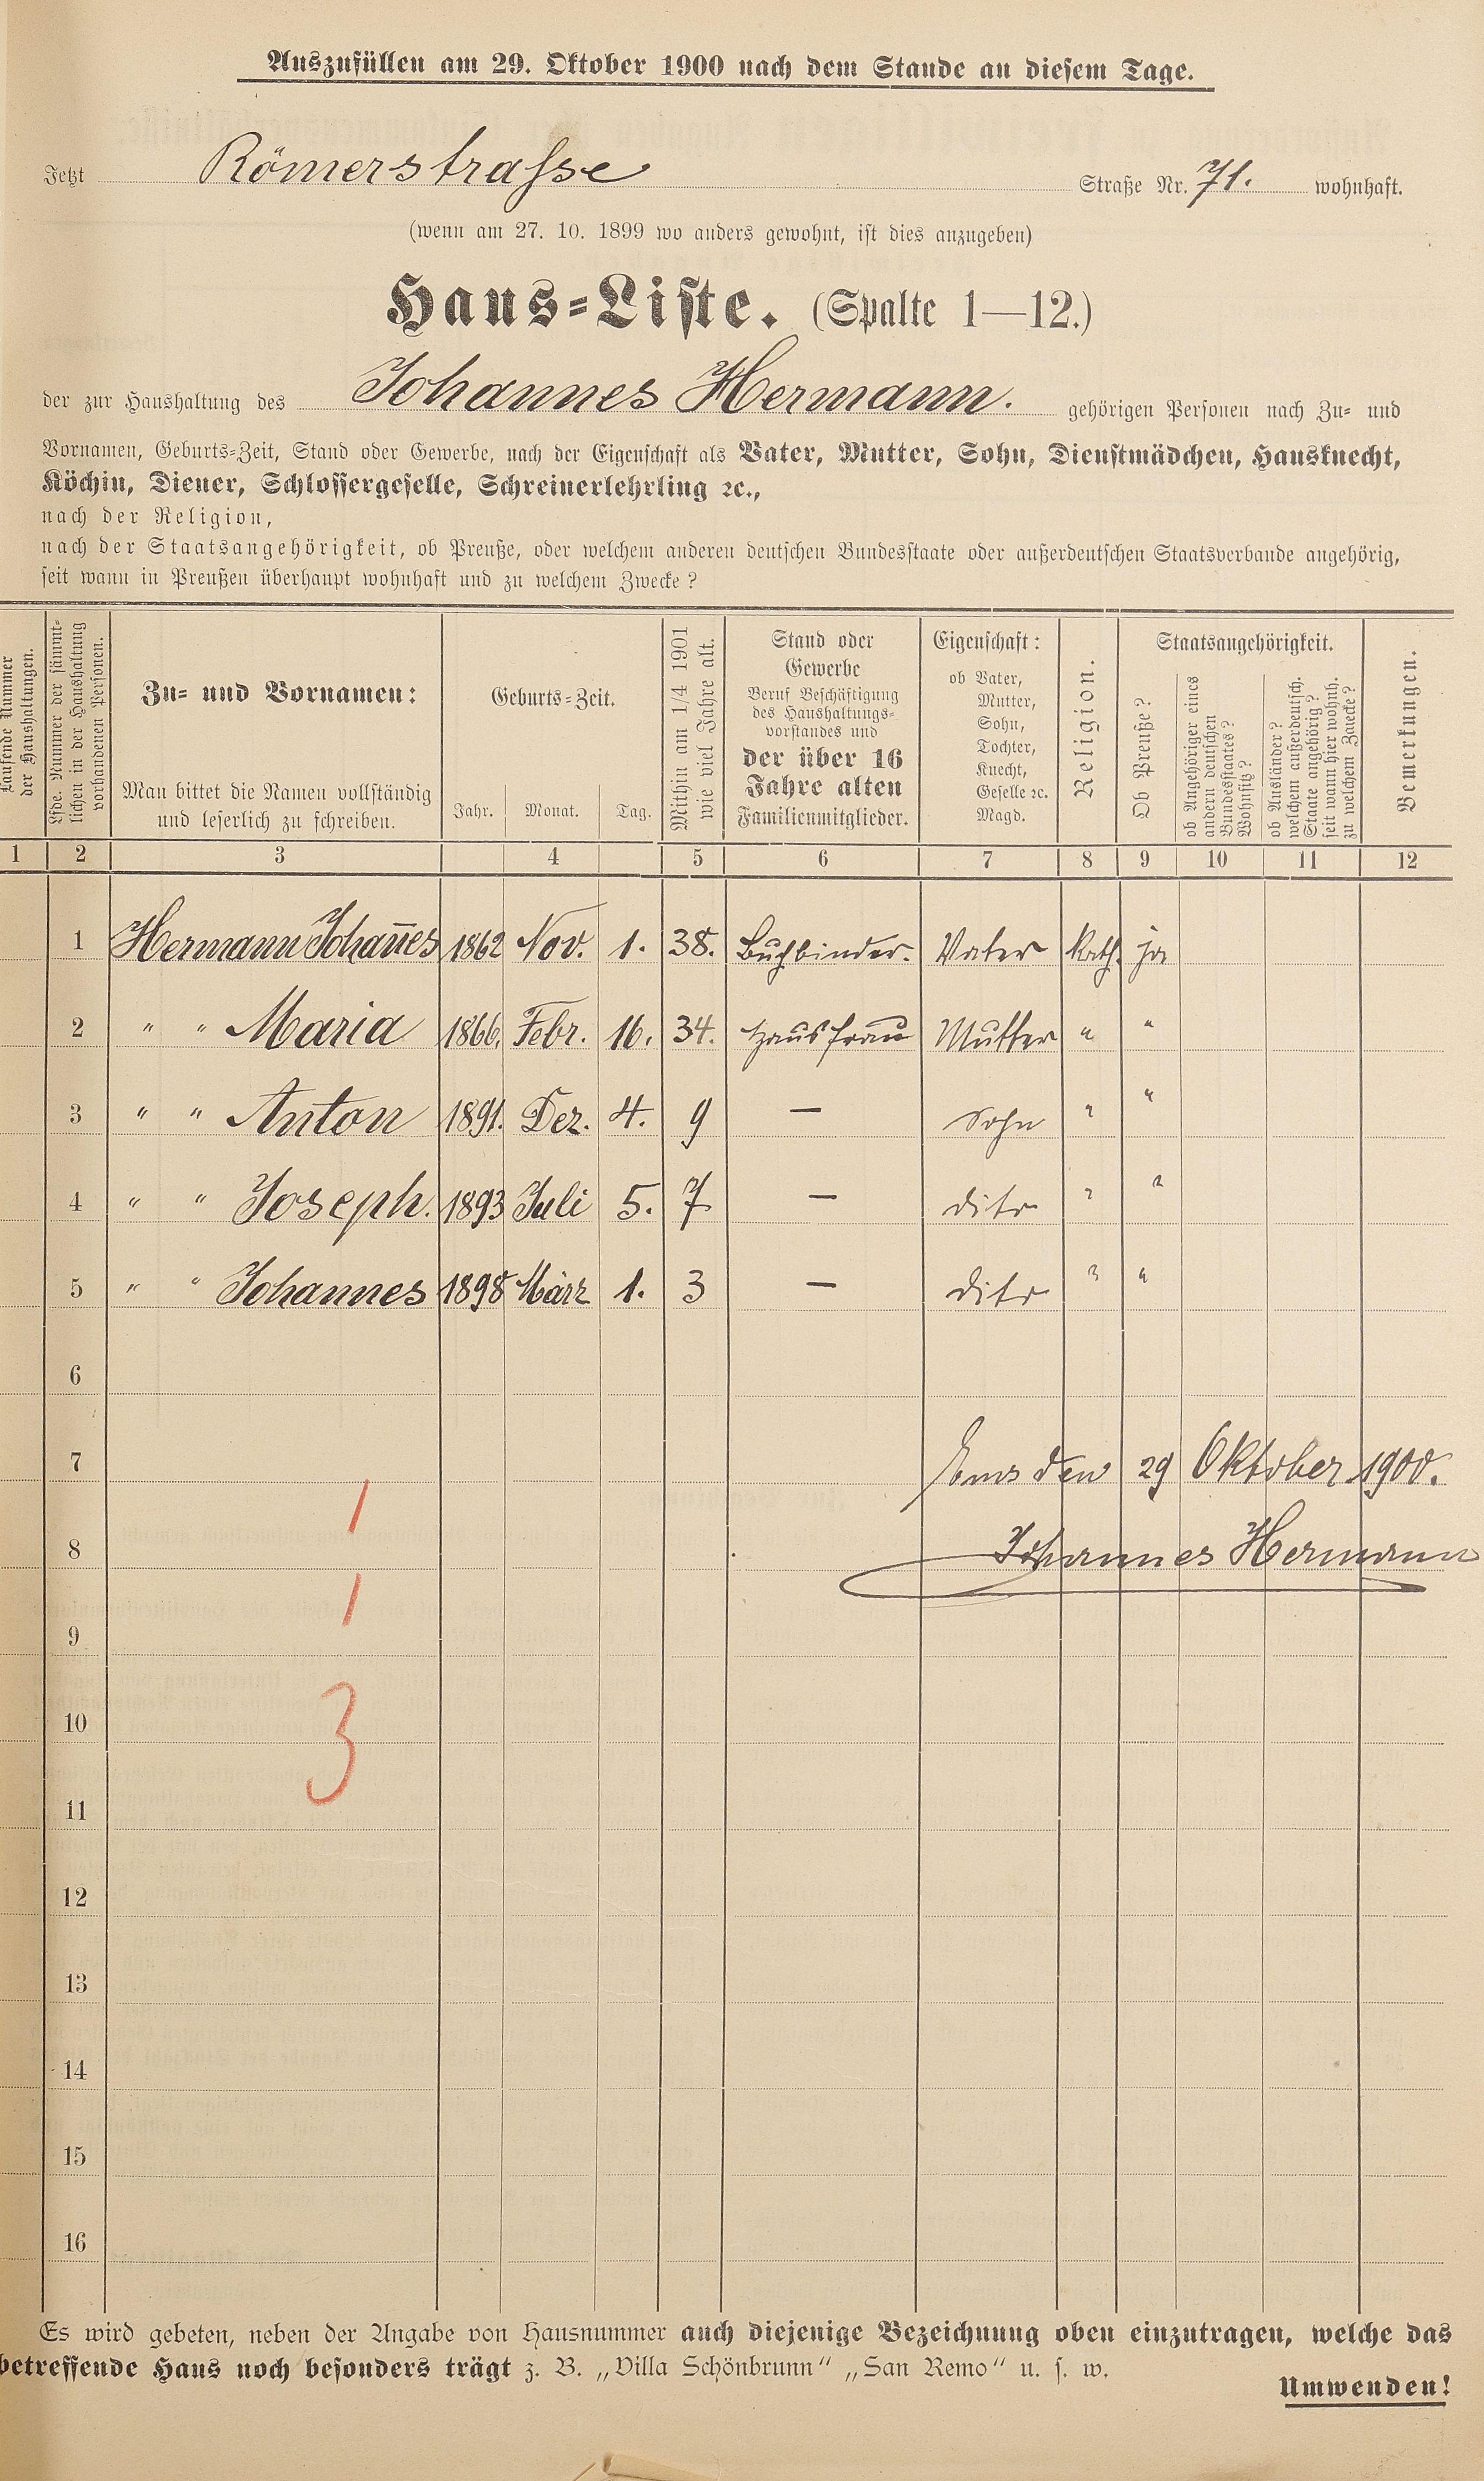 Auszufüllen am 29. Oktober 1900 nach dem Stande an diesem Tage.
Jetzt Römerstrasse Straße Nr. 71. wohnhaft.
(wenn am 27. 10. 1899 wo anders gewohnt, ist dies anzugeben)
Haus-Liste. (Spalte 1—12.)
der zur Haushaltung des Johannes Hermann. gehörigen Personen nach Zu- und
Vornamen, Geburts-Zeit, Stand oder Gewerbe, nach der Eigenschaft als Vater, Mutter, Sohn, Dienstmädchen, Hausknecht,
Köchin, Diener, Schlossergeselle, Schreinerlehrling ꝛc.,
nach der Religion,
nach der Staatsangehörigkeit, ob Preuße, oder welchem anderen deutschen Bundesstaate oder außerdeutschen Staatsverbande angehörig,
seit wann in Preußen überhaupt wohnhaft und zu welchem Zwecke?
Laufende Nummer
der Haushaltungen.
Lfde. Nummer der sämmt-
lichen in der Haushaltung
vorhandenen Personen.
Zu- und Vornamen:
Man bittet die Namen vollständig
und leserlich zu schreiben.
Geburts-Zeit.
Jahr. Monat. Tag.
Mithin am 1/4 1901
wie viel Jahre alt.
Stand oder
Gewerbe
Beruf Beschäftigung
des Haushaltungs-
vorstandes und
der über 16
Jahre alten
Familienmitglieder.
Eigenschaft:
ob Vater,
Mutter,
Sohn,
Tochter,
Knecht,
Geselle ꝛc.
Magd.
Religion.
Staatsangehörigkeit.
Ob Preuße?
ob Angehöriger eines
andern deutschen
Bundesstaates?
Wohnsitz?
ob Ausländer?
welchem außerdeutsch.
Staate angehörig?
seit wann hier wohnh.
zu welchem Zwecke?
Bemerkungen.
1 2 3 4 5 6 7 8 9 10 11 12
1 Hermann Johan̄es 1862 Nov. 1. 38. Buchbinder. Vater kath. ja
2 " " Maria 1866. Febr. 16. 34. Hausfrau Mutter " "
3 " " Anton 1891. Dez. 4. 9 — Sohn " "
4 " " Joseph. 1893 Juli 5. 7 — dito " "
5 " " Johannes 1898 März 1. 3 — dito " "
6
7 Ems den 29 Oktober 1900.
1
8 Johannes Hermann
1
9
3
10
11
12
13
14
15
16
Es wird gebeten, neben der Angabe von Hausnummer auch diejenige Bezeichnung oben einzutragen, welche das
betreffende Haus noch besonders trägt z. B. „Villa Schönbrunn" „San Remo" u. s. w.
Umwenden!